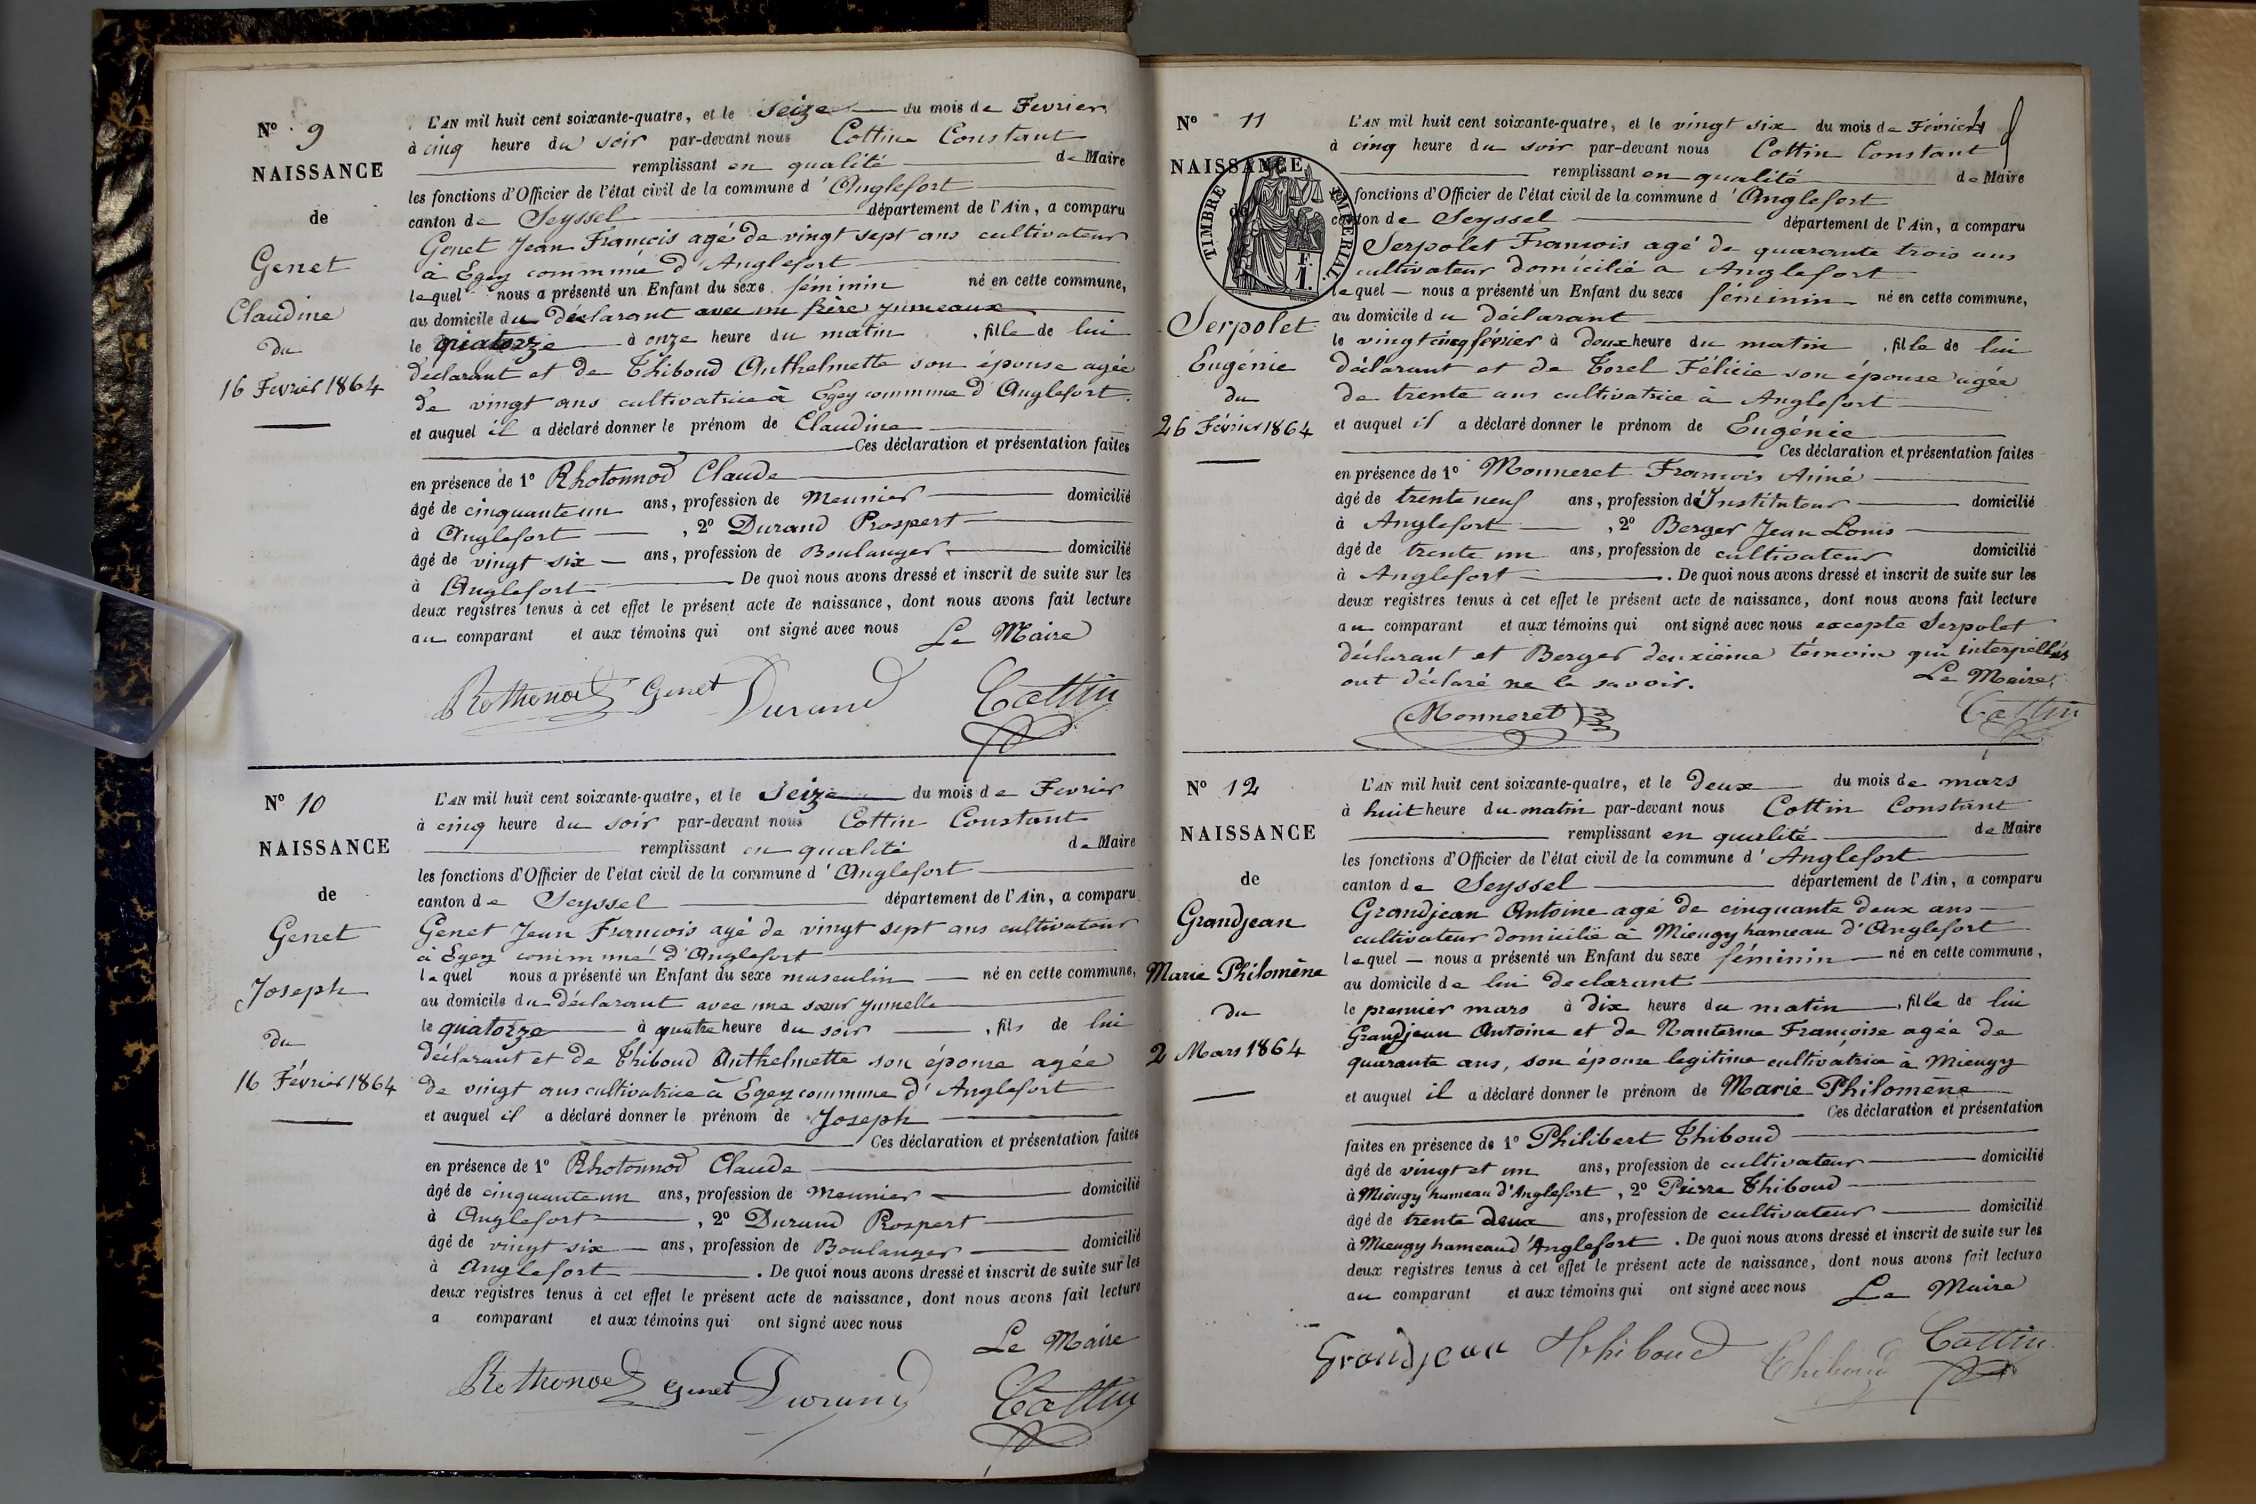 N° 9
NAISSANCE
de
Genet
Claudine
du
16 Fevrier 1864
L'AN mil huit cent soixante-quatre, et le Seize du mois de Fevrier
à cinq heure du soir par-devant nous Cottin Constant
remplissant en qualité de Maire
les fonctions d'Officier de l'état civil de la commune d'Anglefort
canton de Seyssel département de l'Ain, a comparu
Genet Jean François agé de vingt sept ans cultivateur
à Egey commune d'Anglefort
lequel nous a présenté un Enfant du sexe féminin né en cette commune,
au domicile du déclarant avec un frère jumeaux
le quatorze à onze heure du matin, fille de lui
déclarant et de Thiboud Anthelmette son épouse agée
de vingt ans cultivatrice à Egey commune d'Anglefort.
et auquel il a déclaré donner le prénom de Claudine
Ces déclaration et présentation faites
en présence de 1° Rhotonnod Claude
âgé de cinquante un ans, profession de Meunier domicilié
à Anglefort, 2° Durand Prospert
âgé de vingt six ans, profession de Boulanger domicilié
à Anglefort De quoi nous avons dressé et inscrit de suite sur les
deux registres tenus à cet effet le présent acte de naissance, dont nous avons fait lecture
au comparant et aux témoins qui ont signé avec nous Le Maire
Rothonod Genet Durand Cottin
N° 10
NAISSANCE
de
Genet
Joseph
du
16 Février 1864
L'AN mil huit cent soixante-quatre, et le Seize du mois de Fevrier
à cinq heure du soir par-devant nous Cottin Constant
remplissant en qualité de Maire
les fonctions d'Officier de l'état civil de la commune d'Anglefort
canton de Seyssel département de l'Ain, a comparu
Genet Jean François agé de vingt sept ans cultivateur
à Egey commune d'Anglefort
lequel nous a présenté un Enfant du sexe masculin né en cette commune,
au domicile du déclarant avec une sœur jumelle
le quatorze à quatre heure du soir, fils de lui
déclarant et de Thiboud Anthelmette son épouse agée
de vingt ans cultivatrice à Egey commune d'Anglefort
et auquel il a déclaré donner le prénom de Joseph
Ces déclaration et présentation faites
en présence de 1° Rhotonnod Claude
âgé de cinquante un ans, profession de meunier domicilié
à Anglefort, 2° Durand Prospert
âgé de vingt six ans, profession de Boulanger domicilié
à Anglefort. De quoi nous avons dressé et inscrit de suite sur les
deux registres tenus à cet effet le présent acte de naissance, dont nous avons fait lecture
a comparant et aux témoins qui ont signé avec nous
Le Maire
Rothonod Genet Durand Cottin
N° 11
NAISSANCE
de
TIMBRE IMPERIAL.
1 F.
Serpolet
Eugénie
du
26 Février 1864
L'AN mil huit cent soixante-quatre, et le vingt six du mois de Février
à cinq heure du soir par-devant nous Cottin Constant
remplissant en qualité de Maire
fonctions d'Officier de l'état civil de la commune d'Anglefort
canton de Seyssel département de l'Ain, a comparu
Serpolet François agé de quarante trois ans
cultivateur domicilié a Anglefort
lequel nous a présenté un Enfant du sexe féminin né en cette commune,
au domicile du déclarant
le vingt cinq février à deux heure du matin, fille de lui
déclarant et de Torel Félicie son épouse agée
de trente ans cultivatrice à Anglefort
et auquel il a déclaré donner le prénom de Eugénie
Ces déclaration et présentation faites
en présence de 1° Monneret François Aimé
âgé de trente neuf ans, profession d'Instituteur domicilié
à Anglefort, 2° Berger Jean Louis
âgé de trente un ans, profession de cultivateur domicilié
à Anglefort. De quoi nous avons dressé et inscrit de suite sur les
deux registres tenus à cet effet le présent acte de naissance, dont nous avons fait lecture
au comparant et aux témoins qui ont signé avec nous excepté Serpolet
déclarant et Berger deuxième témoin qui interpellés
ont déclaré ne le savoir. Le Maire
Monneret Cottin
N° 12
NAISSANCE
de
Grandjean
Marie Philomène
du
2 Mars 1864
L'AN mil huit cent soixante-quatre, et le deux du mois de mars
à huit heure du matin par-devant nous Cottin Constant
remplissant en qualité de Maire
les fonctions d'Officier de l'état civil de la commune d'Anglefort
canton de Seyssel département de l'Ain, a comparu
Grandjean Antoine agé de cinquante deux ans
cultivateur domicilié à Mieugy hameau d'Anglefort
lequel nous a présenté un Enfant du sexe féminin né en cette commune,
au domicile de lui declarant
le premier mars à dix heure du matin, fille de lui
Grandjean Antoine et de Nanterme Françoise agée de
quarante ans, son épouse legitime cultivatrice à Mieugy
et auquel il a déclaré donner le prénom de Marie Philomène
Ces déclaration et présentation
faites en présence de 1° Philibert Thiboud
âgé de vingt et un ans, profession de cultivateur domicilié
à Mieugy hameau d'Anglefort, 2° Pierre Thiboud
âgé de trente deux ans, profession de cultivateur domicilié
à Mieugy hameau d'Anglefort. De quoi nous avons dressé et inscrit de suite sur les
deux registres tenus à cet effet le présent acte de naissance, dont nous avons fait lecture
au comparant et aux témoins qui ont signé avec nous Le Maire
Grandjean Thiboud Thiboud Cottin